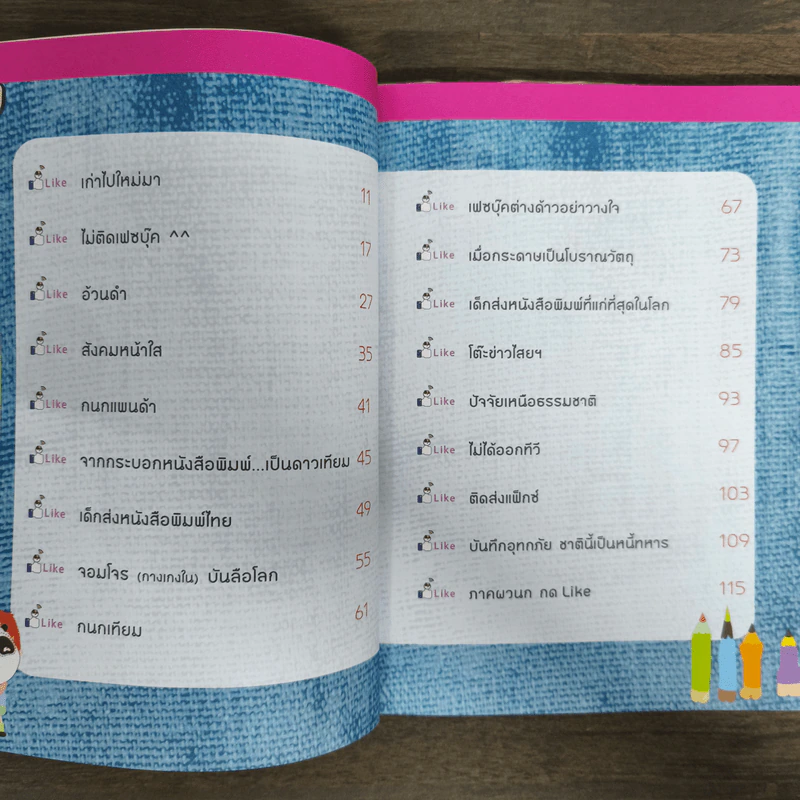 Like เก่าไปใหม่มา 11
Like ไม่ติดเฟซบุ๊ค ^^ 17
Like อ้วนดำ 27
Like สังคมหน้าใส 35
Like กนกแพนด้า 41
Like จากกระบอกหนังสือพิมพ์...เป็นดาวเทียม 45
Like เด็กส่งหนังสือพิมพ์ไทย 49
Like จอมโจร (กางเกงใน) บันลือโลก 55
Like กนกเทียม 61
Like เฟซบุ๊คต่างด้าวอย่าวางใจ 67
Like เมื่อกระดาษเป็นโบราณวัตถุ 73
Like เด็กส่งหนังสือพิมพ์ที่แก่ที่สุดในโลก 79
Like โต๊ะข่าวไสยฯ 85
Like ปัจจัยเหนือธรรมชาติ 93
Like ไม่ได้ออกทีวี 97
Like ติดส่งแฟ็กซ์ 103
Like บันทึกอุทกภัย ชาตินี้เป็นหนี้ทหาร 109
Like ภาคผนวก กด Like 115